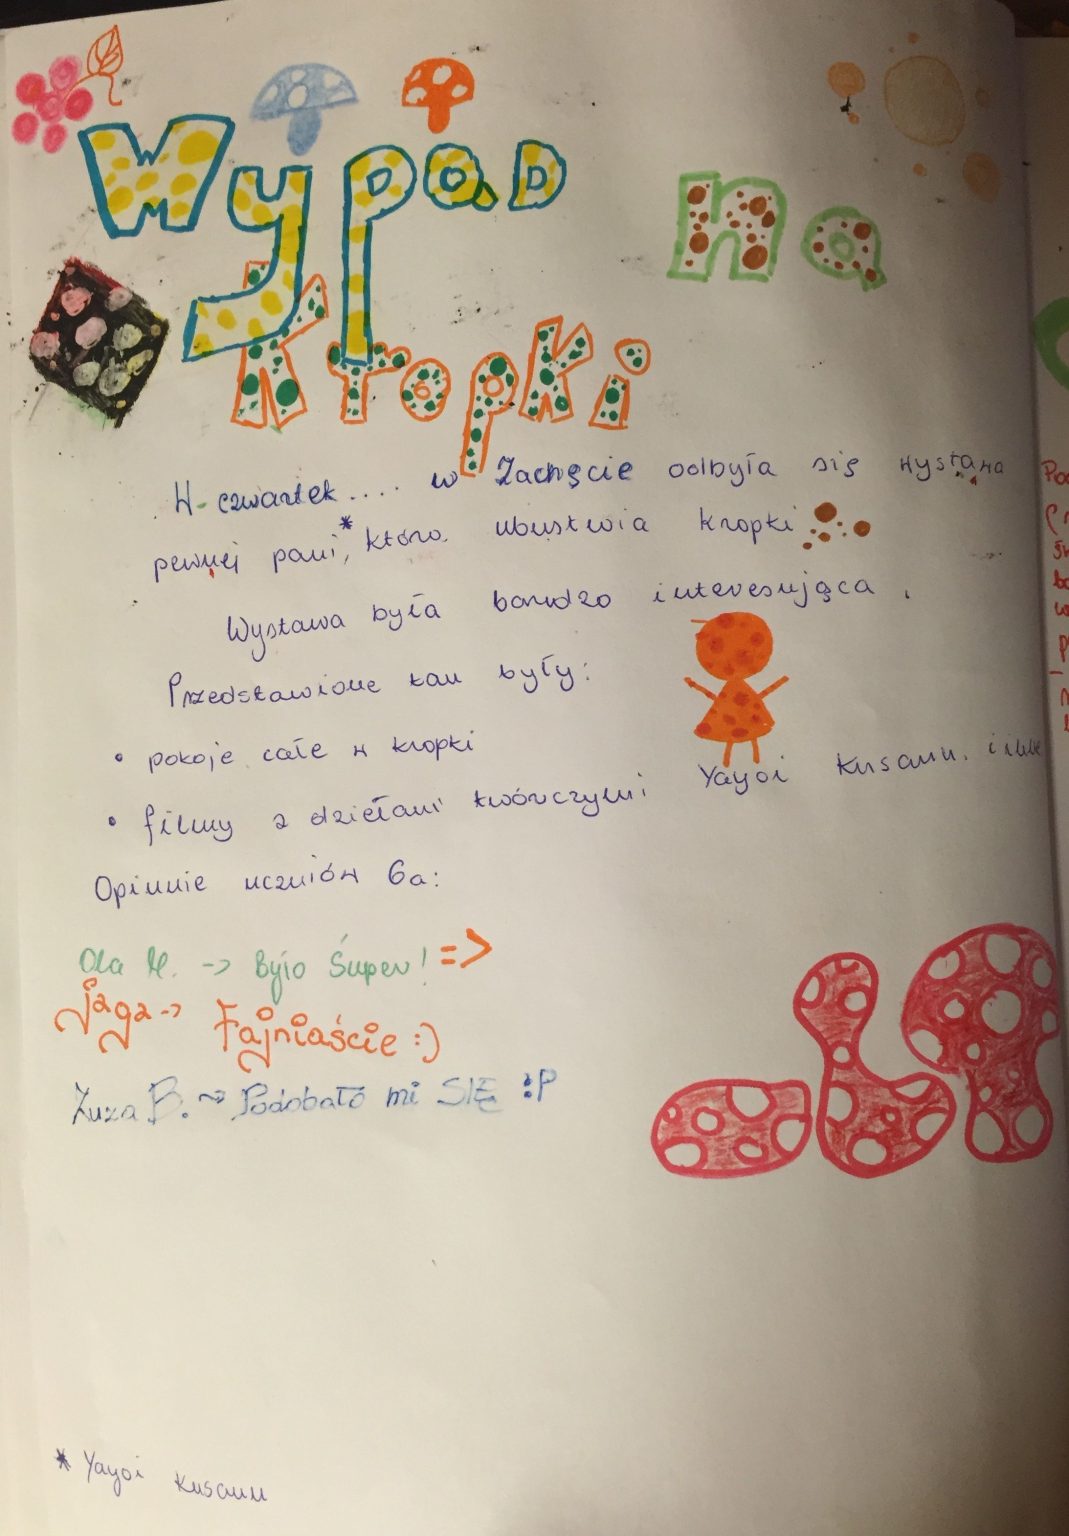 Wypad na
Kropki
W czwartek .... w Zachęcie odbyła się wystawa
pewnej pani*, która ubustwia kropki
Wystawa była bardzo interesująca.
Przedstawione tam były:
• pokoje całe w kropki
• filmy z dziełami twórczymi Yayoi Kusamu. i inne
Opinnie uczniów 6a:
Ola M. -> Było Śuper! =>
Jaga -> Fajniaście :)
Zuza B. ~> Podobało mi SIĘ :P
* Yayoi Kusamu